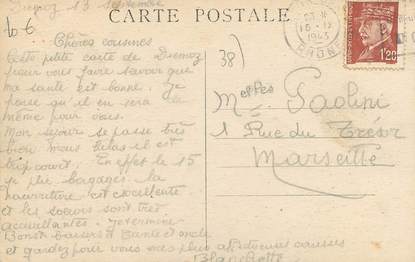 Diemoz 13 septembre
CARTE POSTALE
Chères cousines
Cette petite carte de Diemoz
pour vous faire savoir que
ma santé est bonne. Je
pense qu'il en sera de
même pour vous.
Mon séjour se passe très
bien mais hélas il est
trop court. En effet le 15
je plie bagages. La
nourriture est excellente
et les soeurs sont très
accueillantes. Je termine
Bons baisers à tante et oncle
et gardez pour vous mes plus affectueuses caresses
Blanchette
38)
Melles Paolini
1 Rue du Trésor
Marseille
1943
RHONE
1F20